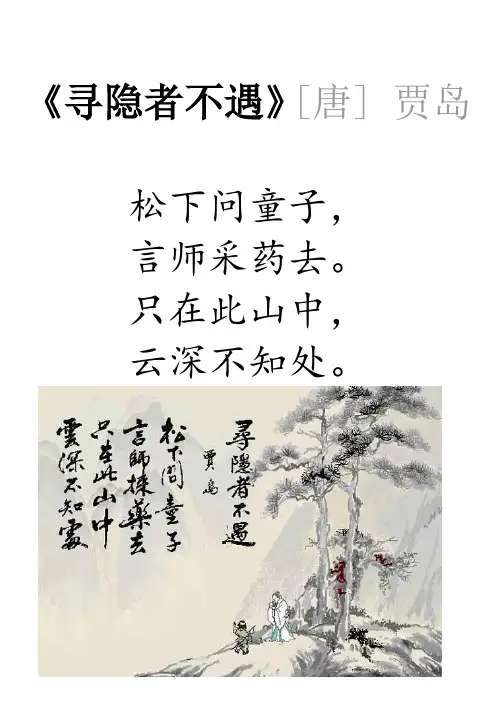 《寻隐者不遇》[唐] 贾岛
松下问童子，
言师采药去。
只在此山中，
云深不知处。
尋隱者不遇
賈島
松下問童子
言師採藥去
只在此山中
雲深不知處